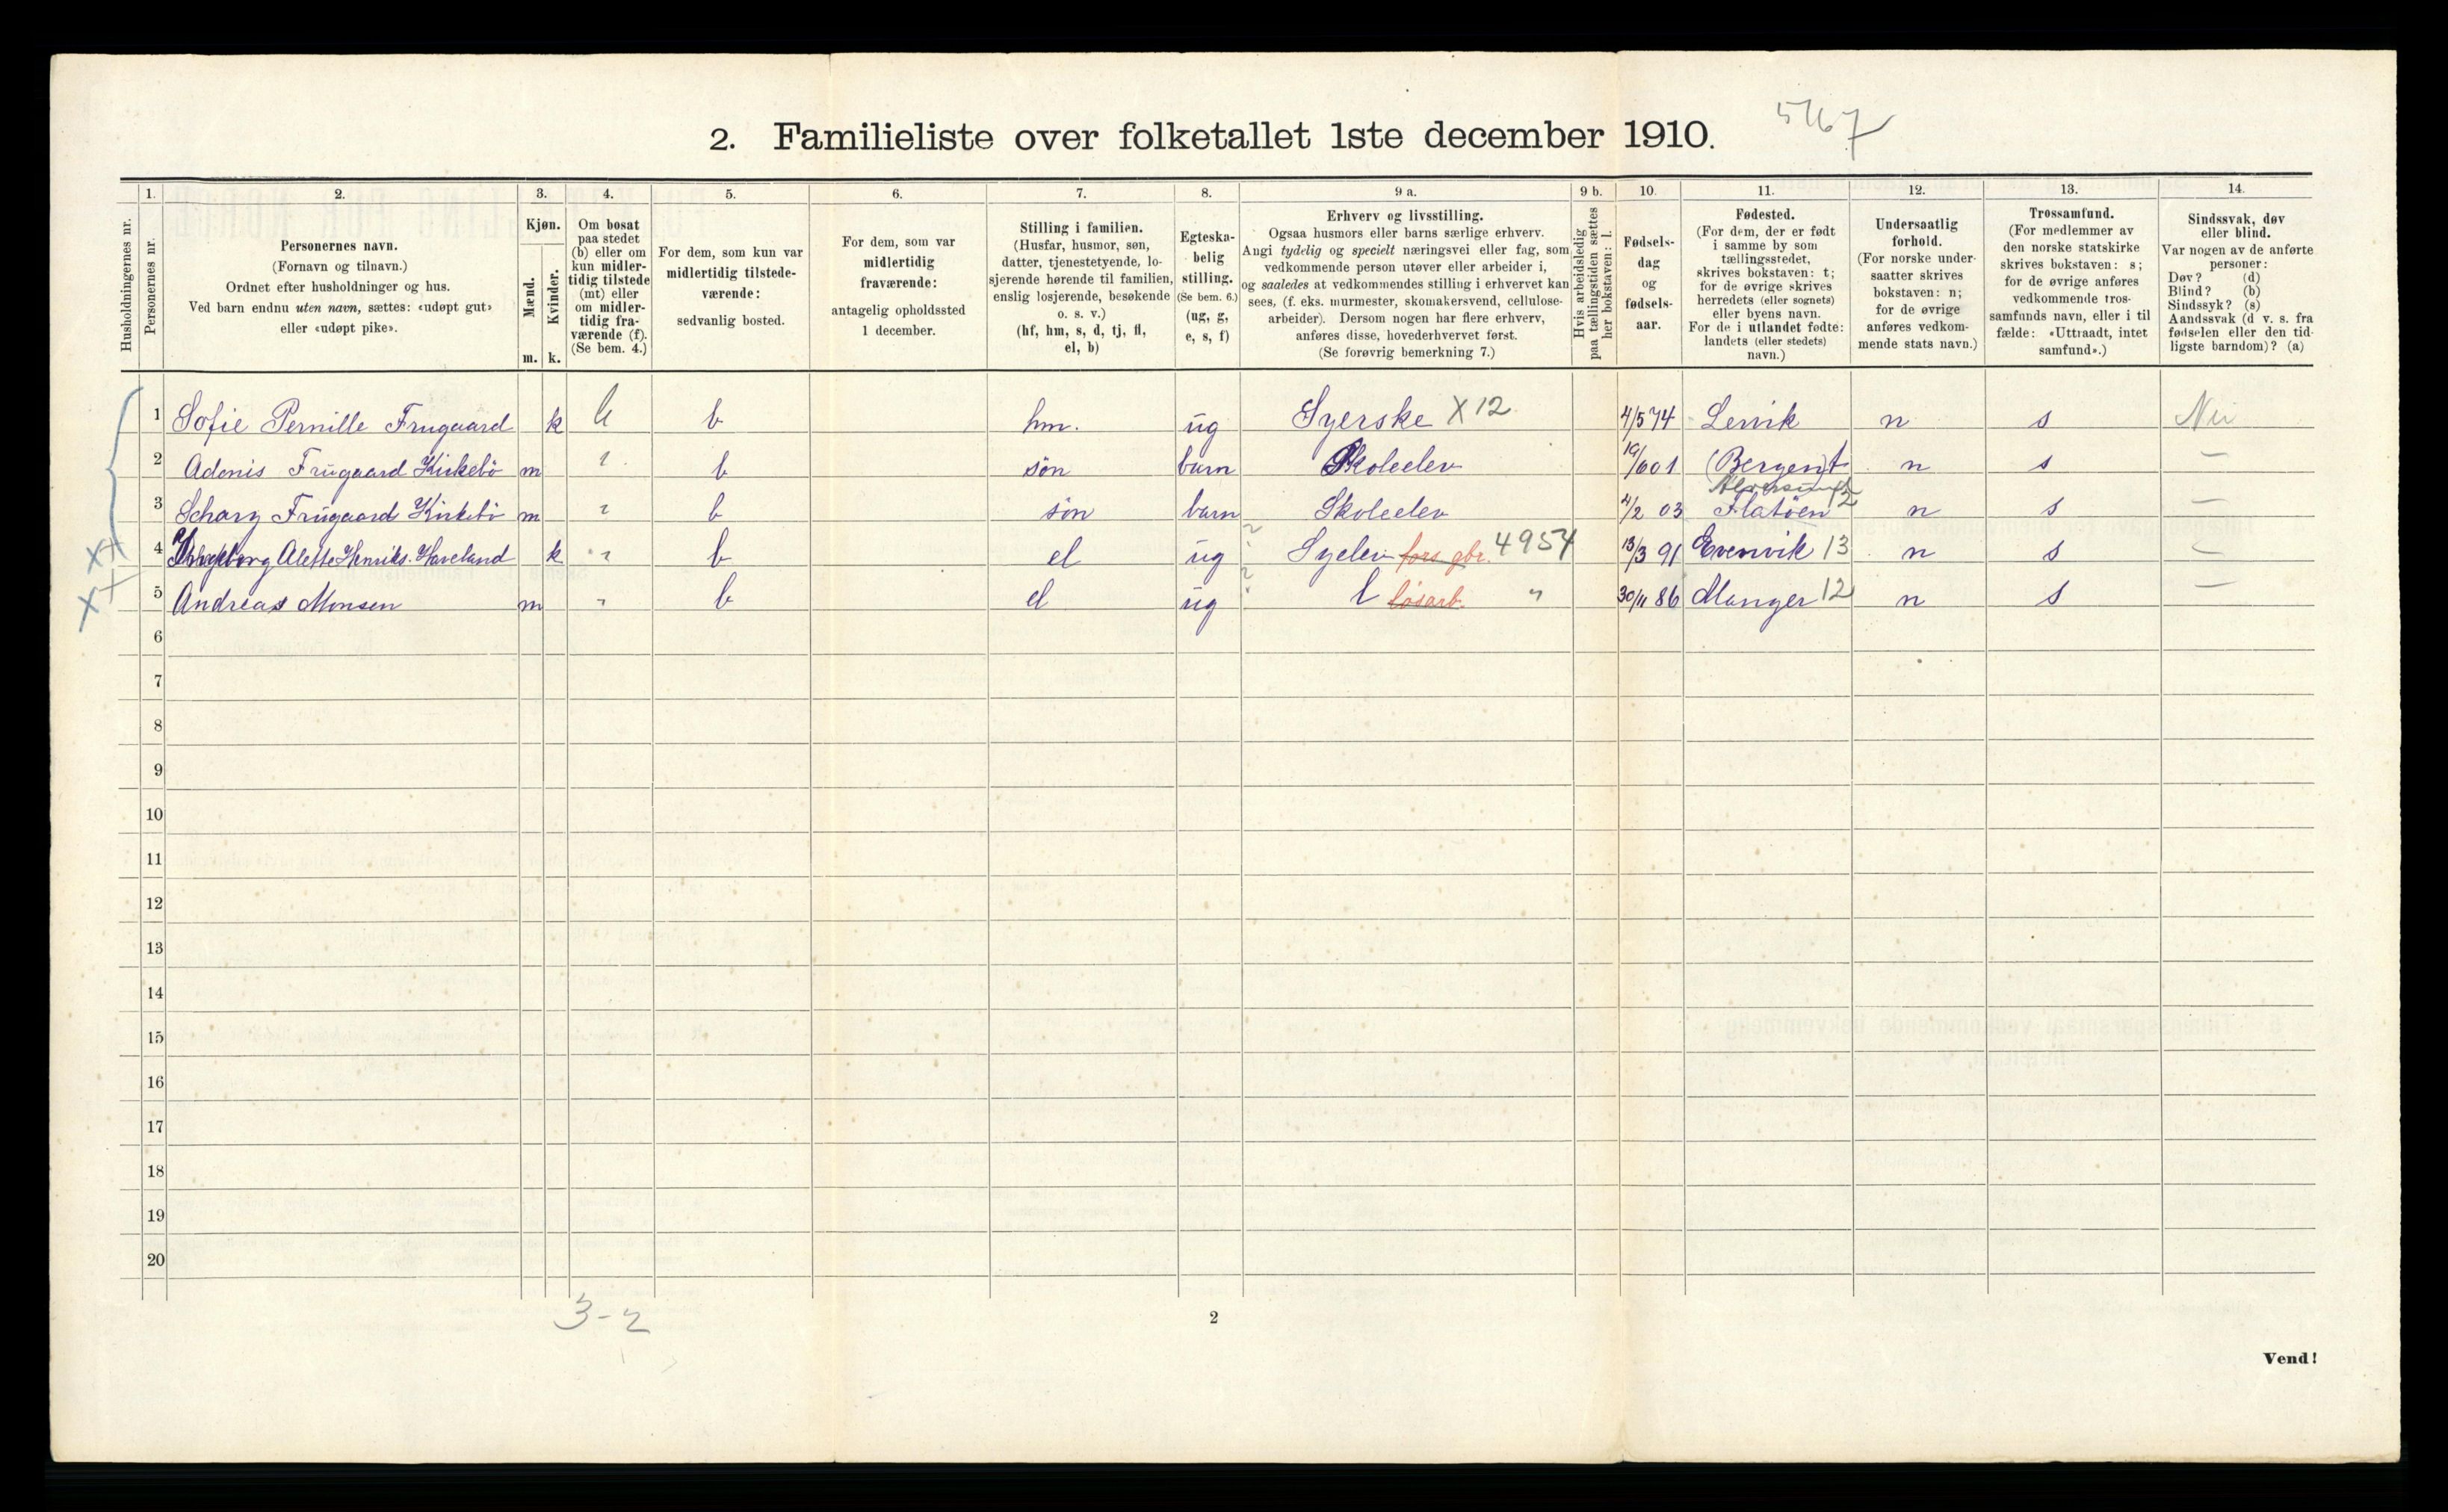 5167
2. Familieliste over folketallet 1ste december 1910.
Husholdningernes nr.
1. Personernes nr.
2. Personernes navn.
(Fornavn og tilnavn.)
Ordnet efter husholdninger og hus.
Ved barn endnu uten navn, sættes: «udøpt gut»
eller «udøpt pike».
3. Kjøn.
Mænd. m.
Kvinder. k.
4. Om bosat
paa stedet
(b) eller om
kun midler-
tidig tilstede
(mt) eller
om midler-
tidig fra-
værende (f).
(Se bem. 4.)
5. For dem, som kun var
midlertidig tilstede-
værende:
sedvanlig bosted.
6. For dem, som var
midlertidig
fraværende:
antagelig opholdssted
1 december.
7. Stilling i familien.
(Husfar, husmor, søn,
datter, tjenestetyende, lo-
sjerende hørende til familien,
enslig losjerende, besøkende
o. s. v.)
(hf, hm, s, d, tj, fl,
el, b)
8. Egteska-
belig
stilling.
(Se bem. 6.)
(ug, g,
e, s, f)
9 a. Erhverv og livsstilling.
Ogsaa husmors eller barns særlige erhverv.
Angi tydelig og specielt næringsvei eller fag, som
vedkommende person utøver eller arbeider i,
og saaledes at vedkommendes stilling i erhvervet kan
sees, (f. eks. murmester, skomakersvend, cellulose-
arbeider). Dersom nogen har flere erhverv,
anføres disse, hovederhvervet først.
(Se forøvrig bemerkning 7.)
9 b. Hvis arbeidsledig
paa tællingstiden sættes
her bokstaven: l.
10. Fødsels-
dag
og
fødsels-
aar.
11. Fødested.
(For dem, der er født
i samme by som
tællingsstedet,
skrives bokstaven: t;
for de øvrige skrives
herredets (eller sognets)
eller byens navn.
For de i utlandet fødte:
landets (eller stedets)
navn.)
12. Undersaatlig
forhold.
(For norske under-
saatter skrives
bokstaven: n;
for de øvrige
anføres vedkom-
mende stats navn.)
13. Trossamfund.
(For medlemmer av
den norske statskirke
skrives bokstaven: s;
for de øvrige anføres
vedkommende tros-
samfunds navn, eller i til
fælde: «Uttraadt, intet
samfund».)
14. Sindssvak, døv
eller blind.
Var nogen av de anførte
personer:
Døv? (d)
Blind? (b)
Sindssyk? (s)
Aandssvak (d v. s. fra
fødselen eller den tid-
ligste barndom)? (a)
1 Sofie Pernille Frugaard k b hm. ug Syerske X12 4/5 74 Lervik n s Nei
2 Adonis Frugaard Kirkebö m " b sön barn Skoleelev 19/6 01 (Bergen) t n s —
Alversund
3 Scharg Frugaard Kirkebö m " b sön barn Skoleelev 4/2 03 Flatöen 12 n s —
4 Alette Henriks. Haveland k " b el ug Syelev fors gbr. 4954 13/3 91 Evenvik 13 n s —
5 Andreas Monsen m " b el ug l løsarb. " 30/11 86 Manger 12 n s —
6
7
8
9
10
11
12
13
14
15
16
17
18
19
20
3-2
2
Vend!